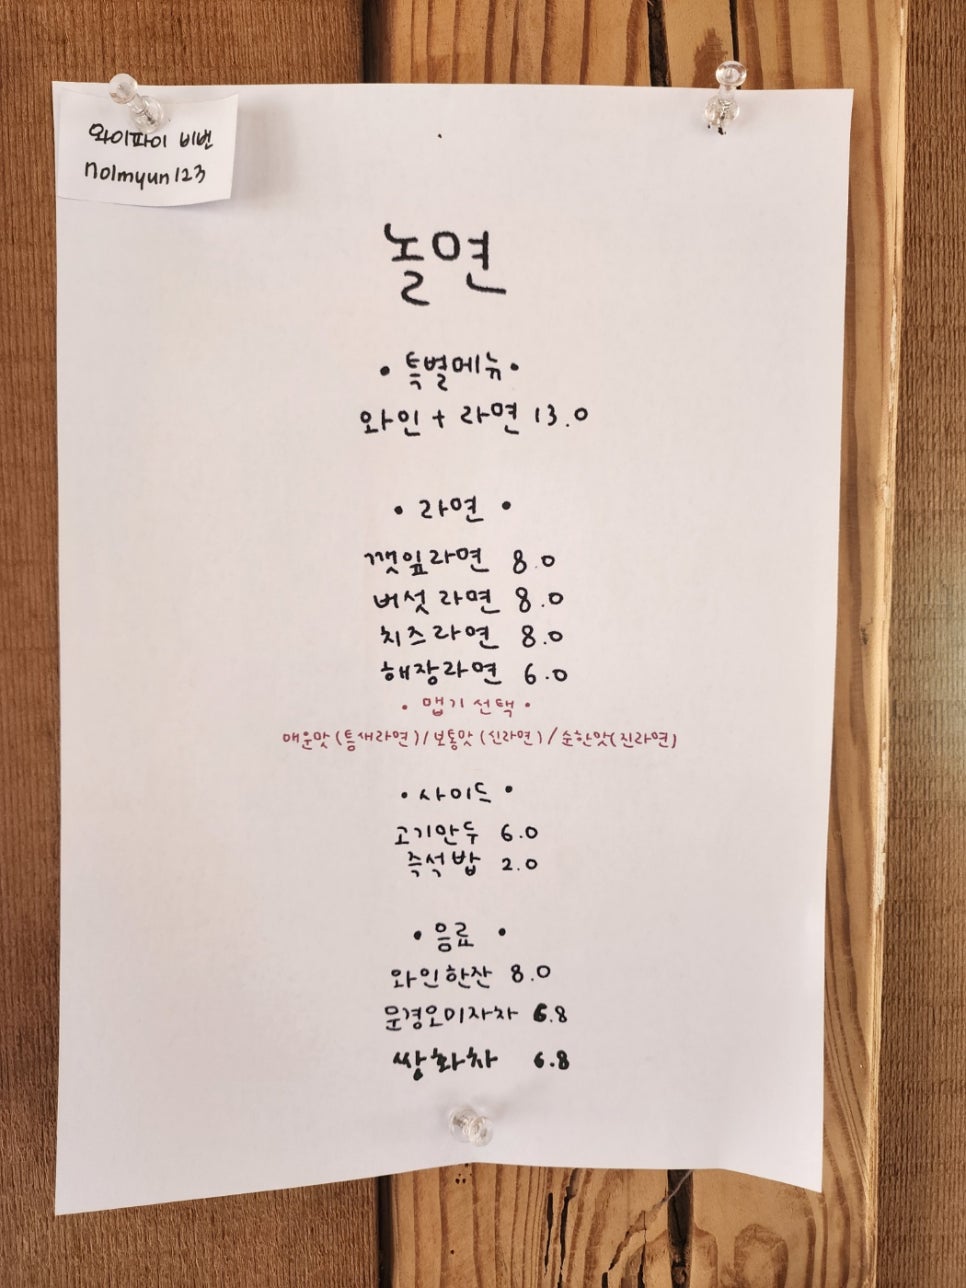 와이파이 비번
nolmyun123
놀면
• 특별메뉴 •
와인 + 라면 13.0
• 라면 •
깻잎라면 8.0
버섯라면 8.0
치즈라면 8.0
해장라면 6.0
• 맵기 선택 •
매운맛(틈새라면)/보통맛(신라면)/순한맛(진라면)
• 사이드 •
고기만두 6.0
즉석밥 2.0
• 음료 •
와인한잔 8.0
문경오미자차 6.8
쌍화차 6.8